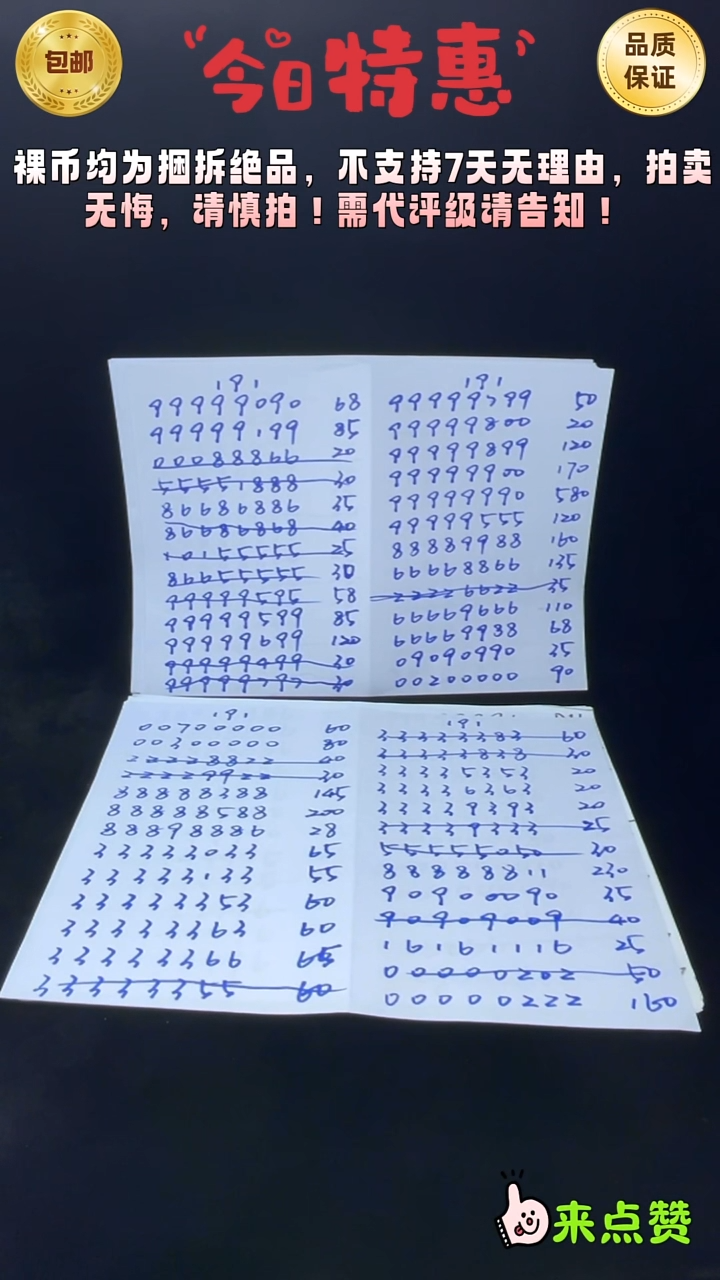 包邮
“今日特惠”
品质
保证
裸币均为捆拆绝品，不支持7天无理由，拍卖
无悔，请慎拍！需代评级请告知！
191
99999090 68
99999199 85
00088866 20
55551888 30
86686886 35
86686868 40
10155555 25
86655555 30
99999595 58
99999599 85
99999699 120
99999499 30
99999797 30
191
99999799 50
99999800 20
99999899 120
99999900 170
99999990 580
99999555 120
88889988 160
66668866 135
22226622 35
66669666 110
66669938 68
09090990 35
00200000 90
191
00700000 60
00300000 80
22228822 40
22229922 30
88888388 145
88888588 200
88898886 28
33333033 65
33333133 55
33333353 60
33333363 60
33333366 65
33333355 60
191
33333383 60
33333838 30
33335353 20
33336363 20
33339393 20
33339333 25
55555050 30
88888811 230
90900090 35
90909009 40
16161116 25
00000202 50
00000222 160
来点赞